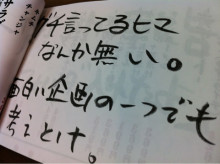 グチ言ってるヒマ
なんか無い。
面白い企画の一つでも
考えとけ。